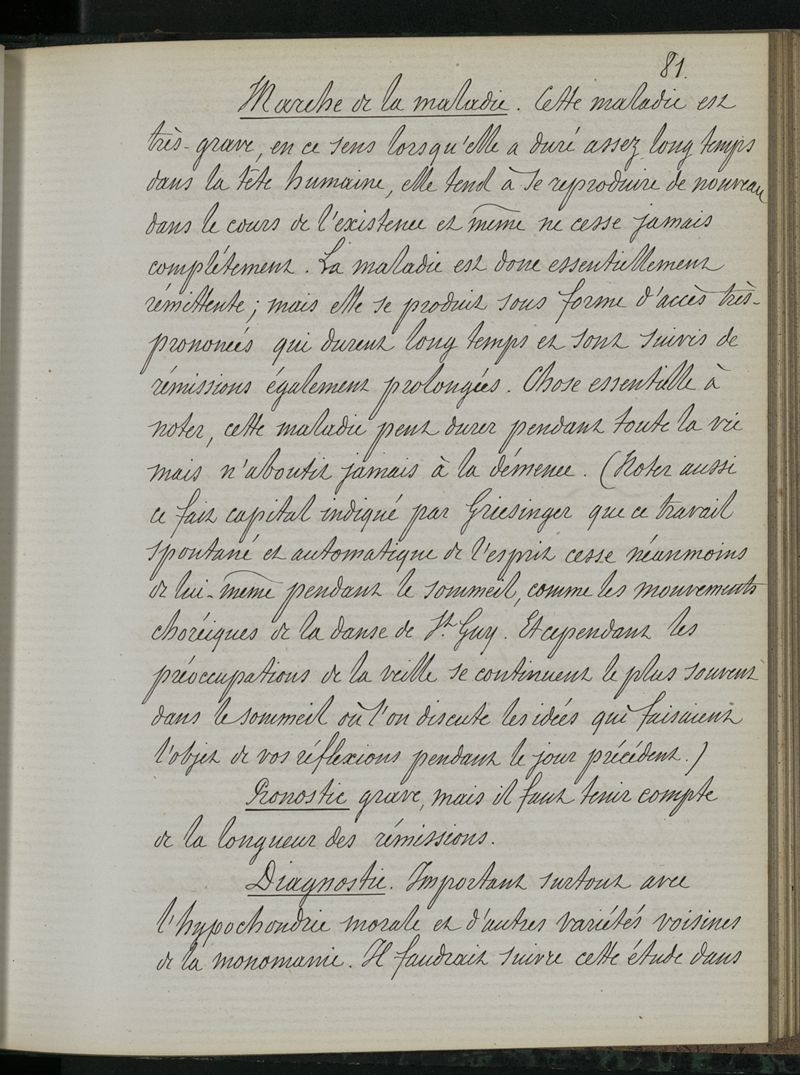 81.
Marche de la maladie. Cette maladie est
très-grave, en ce sens lorsqu'elle a duré assez long temps
dans la tête humaine, elle tend à se reproduire de nouveau
dans le cours de l'existence et même ne cesse jamais
complétement. La maladie est donc essentiellement
rémittente; mais elle se produit sous forme d'accès très-
prononcés qui durent long temps et sont suivis de
rémissions également prolongées. Chose essentielle à
noter, cette maladie peut durer pendant toute la vie
mais n'aboutit jamais à la démence. (Noter aussi
ce fait capital indiqué par Griesinger que ce travail
spontané et automatique de l'esprit cesse néanmoins
de lui-même pendant le sommeil, comme les mouvements
choréiques de la danse de St. Guy. Et cependant les
préoccupations de la veille se continuent le plus souvent
dans le sommeil où l'on discute les idées qui faisaient
l'objet de vos réflexions pendant le jour précédent.)
Pronostic grave, mais il faut tenir compte
de la longueur des rémissions.
Diagnostic. Important surtout avec
l'hypochondrie morale et d'autres variétés voisines
de la monomanie. Il faudrait suivre cette étude dans